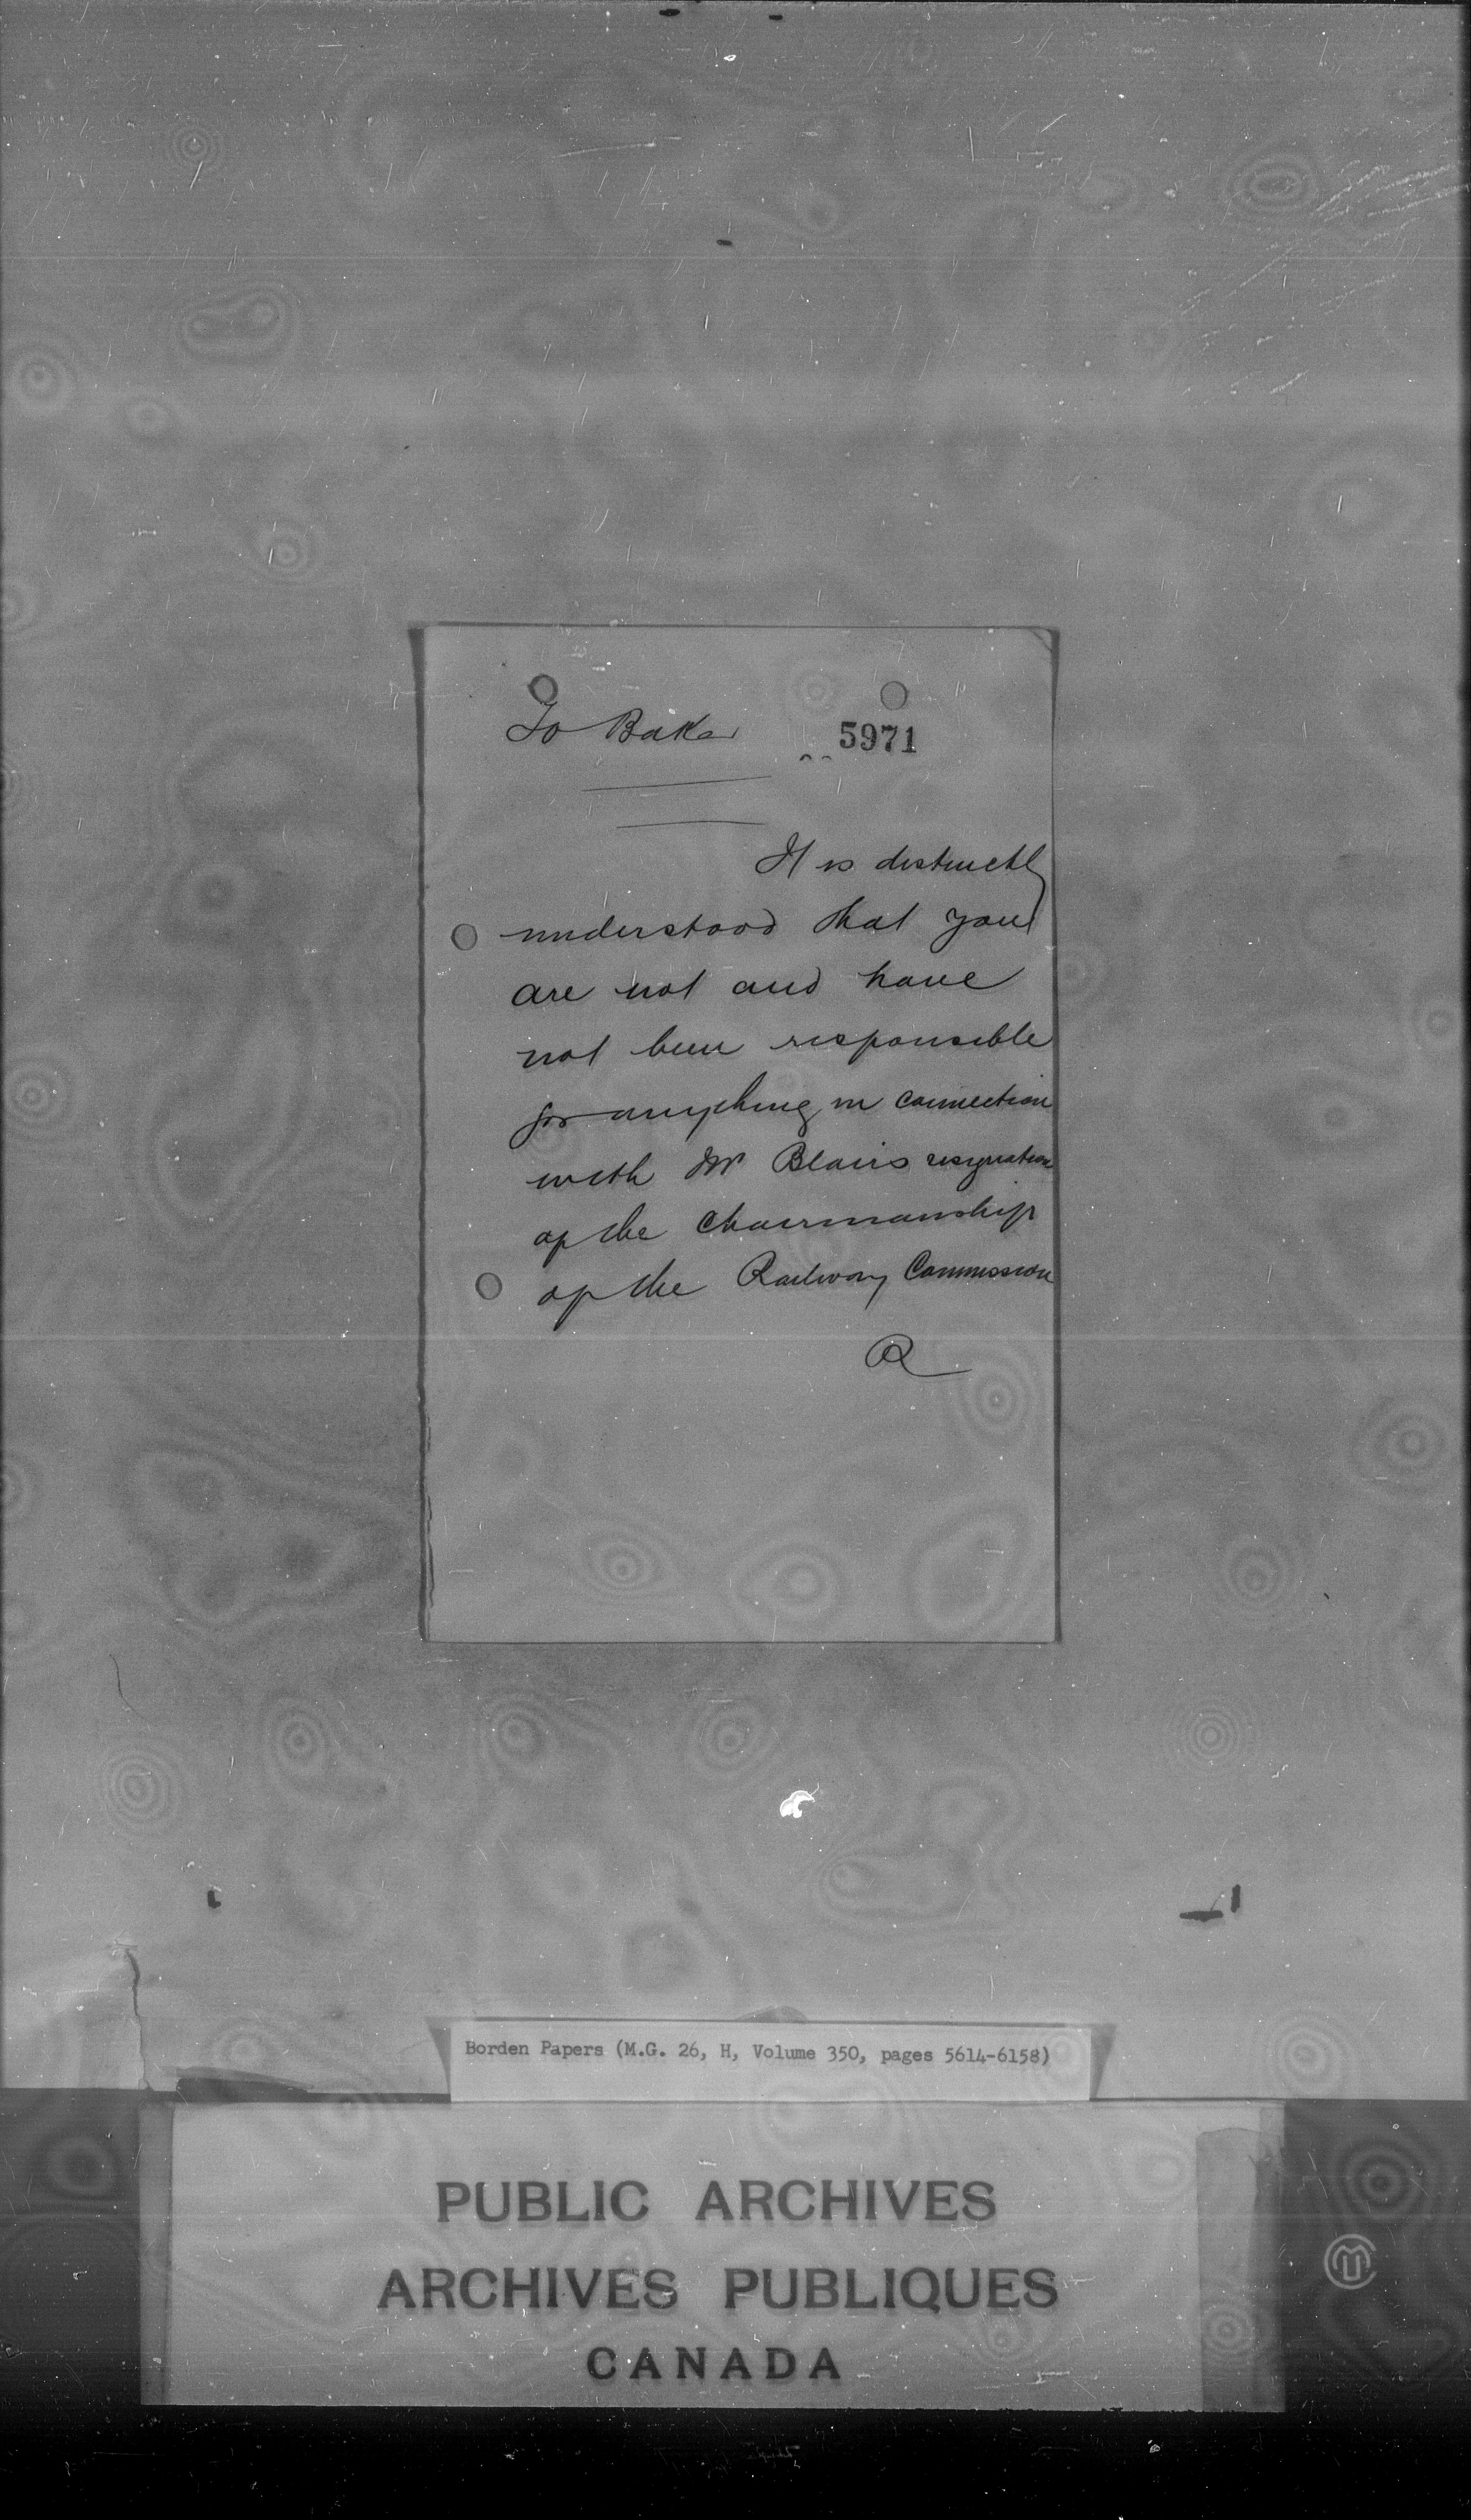 To Baker
5971
It is distinctly
understood that you
are not and have
not been responsible
for anything in connection
with Mr Blairs resignation
of the Chairmanship
of the Railway Commission
R
Borden Papers (M.G. 26, H, Volume 350, pages 5614-6158)
PUBLIC ARCHIVES
ARCHIVES PUBLIQUES
CANADA